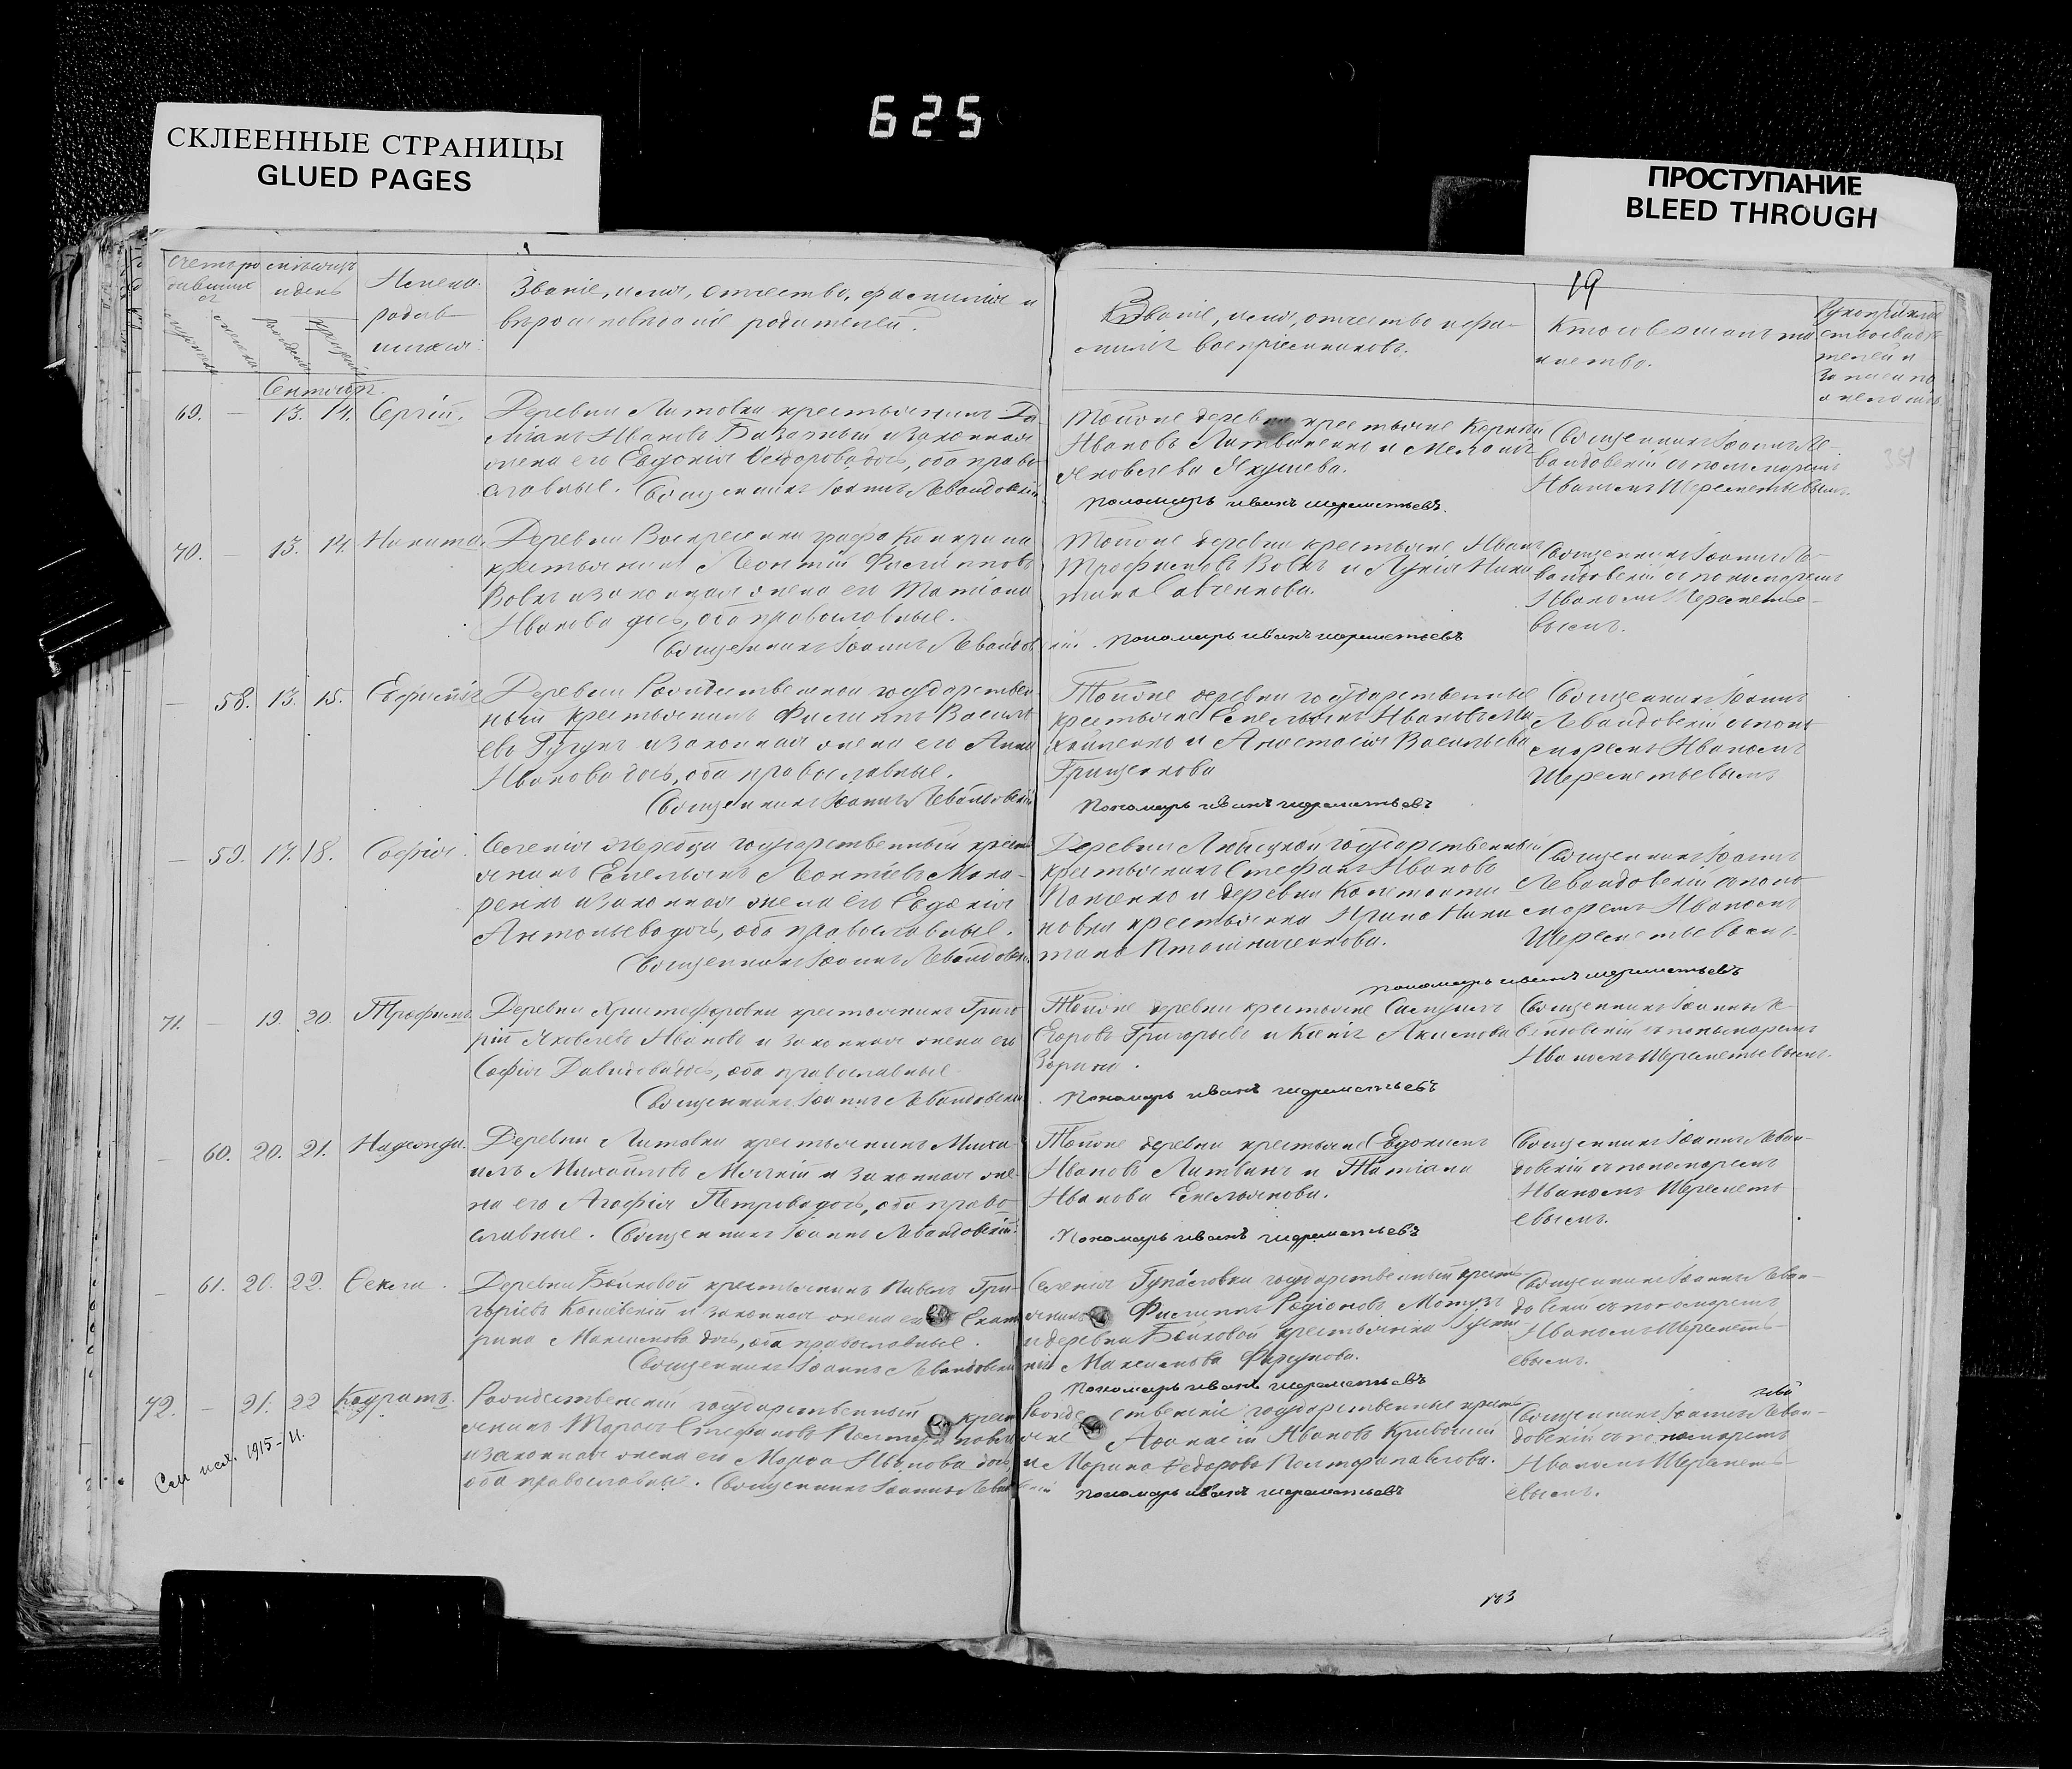 625
СКЛЕЕННЫЕ СТРАНИЦЫ
GLUED PAGES
ПРОСТУПАНИЕ
BLEED THROUGH
19
Счетъ ро мѣсяцъ
и день
Имена
родив
шихся
Званіе, имя, отчество, фамилія и
вѣроисповѣданіе родителей.
Званіе, имя, отчество и фа-
миліи воспріемниковъ.
Кто совершалъ та
инство.
Сентябрь.
69. – 13. 14. Сергій.
Деревни Литовки крестьянинъ
Ивановъ и законная
жена его Евдокія Ѳеодорова дочь, оба право
славные. Священникъ Іоаннъ Левандовскій
Тойже деревни крестьяне Корнилій
Ивановъ Литвиненко и Меланія
Яковлева Якушева.
Пономарь иванъ шереметьевъ.
Священникъ Іоаннъ Ле-
вандовскій съ пономаремъ
Иваномъ Шереметьевымъ.
70. – 13. 14. Никита.
Деревни Воскресенки графа Канкрина
крестьянинъ Леонтій Филипповъ
Вовкъ и законная жена его Татіана
Иванова дочь, оба православные.
Священникъ Іоаннъ Левандов
скій. Пономарь иванъ шереметьевъ
Тойже деревни крестьяне Иванъ
Трофимовъ Вовкъ и Лукія Ники
тина Савченкова.
Священникъ Іоаннъ Ле-
вандовскій съ пономаремъ
Иваномъ Шереметье-
вымъ.
– 58. 13. 15. Евфимія
Деревни Рождественской государствен
ный крестьянинъ Филиппъ Василь
евъ Гугукъ и законная жена его Анна
Иванова дочь, оба православные.
Священникъ Іоаннъ Левандовскій
Тойже деревни государственные
крестьяне Емельянъ Ивановъ Ми
хайленко и Анастасія Васильева
Грищенкова
Пономарь иванъ шереметьевъ
Священникъ Іоаннъ
Левандовскій съ поно
маремъ Иваномъ
Шереметьевымъ
– 59. 17. 18. Софія.
Селенія Жеребца государственный кресть
янинъ Емельянъ Леонтіевъ Мака-
ренко и законная жена его Евдокія
Антоньева дочь, оба православные.
Священникъ Іоаннъ Левандовскій
Деревни Любицкой государственный
крестьянинъ Стефанъ Ивановъ
и деревни Константи
новки крестьянка Ирина Ники
тина Пташниченкова.
Пономарь иванъ шереметьевъ
Священникъ Іоаннъ
Левандовскій съ поно
маремъ Иваномъ
Шереметьевымъ.
71. – 19. 20. Трофимъ.
Деревни Христофоровки крестьянинъ Григо
рій Яковлевъ Ивановъ и законная жена его
Софія Давидова дочь, оба православные
Священникъ Іоаннъ Левандовскій
Тойже деревни крестьяне Самуилъ
Егоровъ Григорьевъ и Ксенія Акимова
Зорина.
Пономарь иванъ шереметьевъ
Священникъ Іоаннъ Ле-
вандовскій съ пономаремъ
Иваномъ Шереметьевымъ.
– 60. 20. 21. Надежда.
Деревни Литовки крестьянинъ Миха-
илъ Михайловъ Мягкій и законная же-
на его Агафія Петрова дочь, оба право
славные. Священникъ Іоаннъ Левандовскій.
Тойже деревни крестьяне Евдокимъ
Ивановъ Литвинъ и Татіана
Иванова Емельянова.
Пономарь иванъ шереметьевъ
Священникъ Іоаннъ Леван-
довскій съ пономаремъ
Иваномъ Шеремет-
евымъ.
– 61. 20. 22. Ѳекла.
Деревни Бойковой крестьянинъ Павелъ Гри-
горіевъ Кошевскій и законная жена его Екате
рина Максимова дочь, оба православные.
Священникъ Іоаннъ Левандовскій
Селенія Гусаловки государственный кресть
янинъ Филиппъ Родіоновъ Мотузъ
и деревни Бойковой крестьянка
Максимова
Пономарь иванъ шереметьевъ
Священникъ Іоаннъ Леван-
довскій съ пономаремъ
Иваномъ Шеремет-
евымъ.
72. – 21. 22 Кодратъ.
Рождественскій государственный крест
янинъ Тарасъ Стефановъ
и законная жена его Марѳа Иванова дочь,
оба православные. Священникъ Іоаннъ Леван
Рождественскіе государственные кресть
яне Аѳанасій Ивановъ Кривошей
и Марина Ѳедорова Полтарапавлова.
Пономарь иванъ шереметьевъ
Священникъ Іоаннъ Леван-
довскій съ пономаремъ
Иваномъ Шеремет-
евымъ.
1915-11.
183